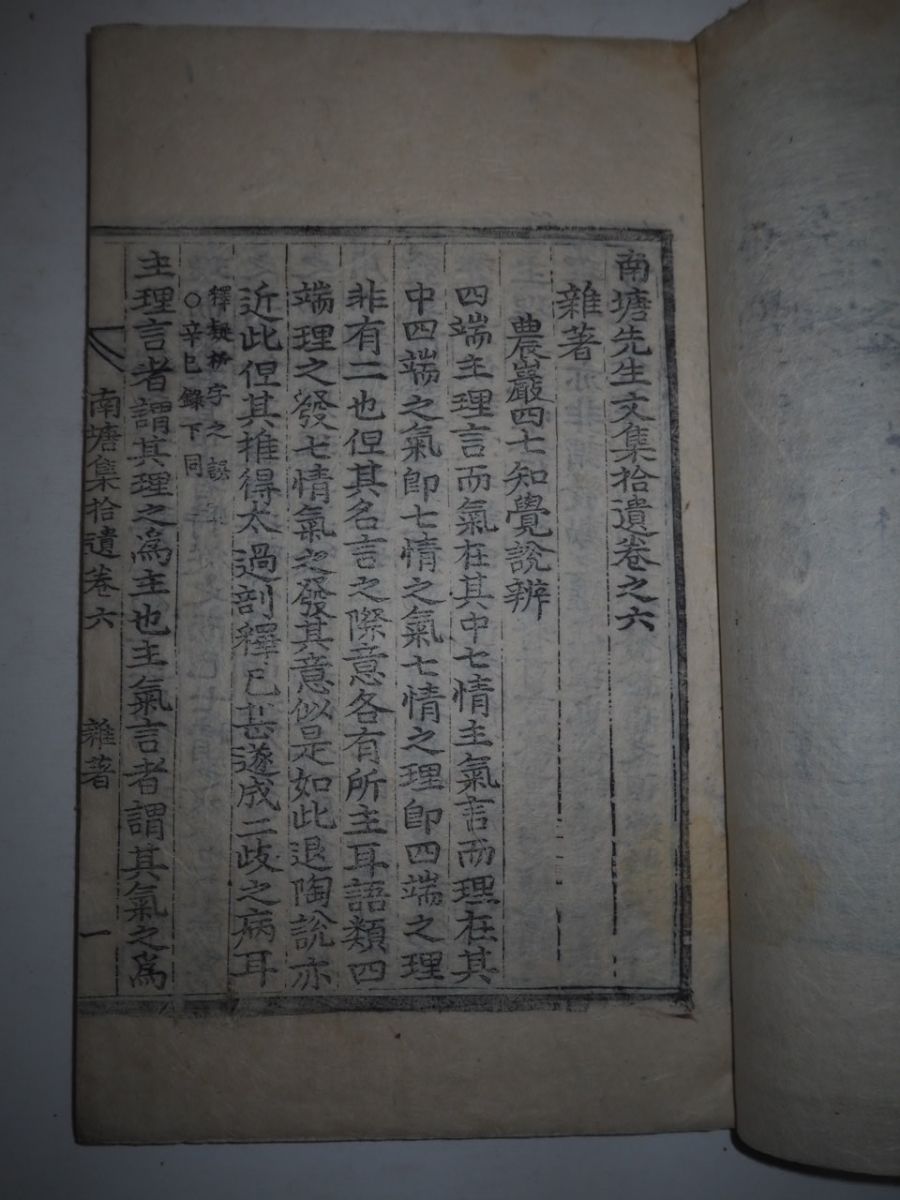 南塘先生文集拾遺卷之六
雜著
農巖四七知覺說辨
四端主理言而氣在其中七情主氣言而理在其
中四端之氣卽七情之氣七情之理卽四端之理
非有二也但其名言之際意各有所主耳語類四
端理之發七情氣之發其意似是如此退陶說亦
近此但其推得太過剖釋已甚遂成二歧之病耳
釋疑析字之誤
○辛巳錄下同
主理言者謂其理之爲主也主氣言者謂其氣之爲
南塘集拾遺卷六 雜著 一